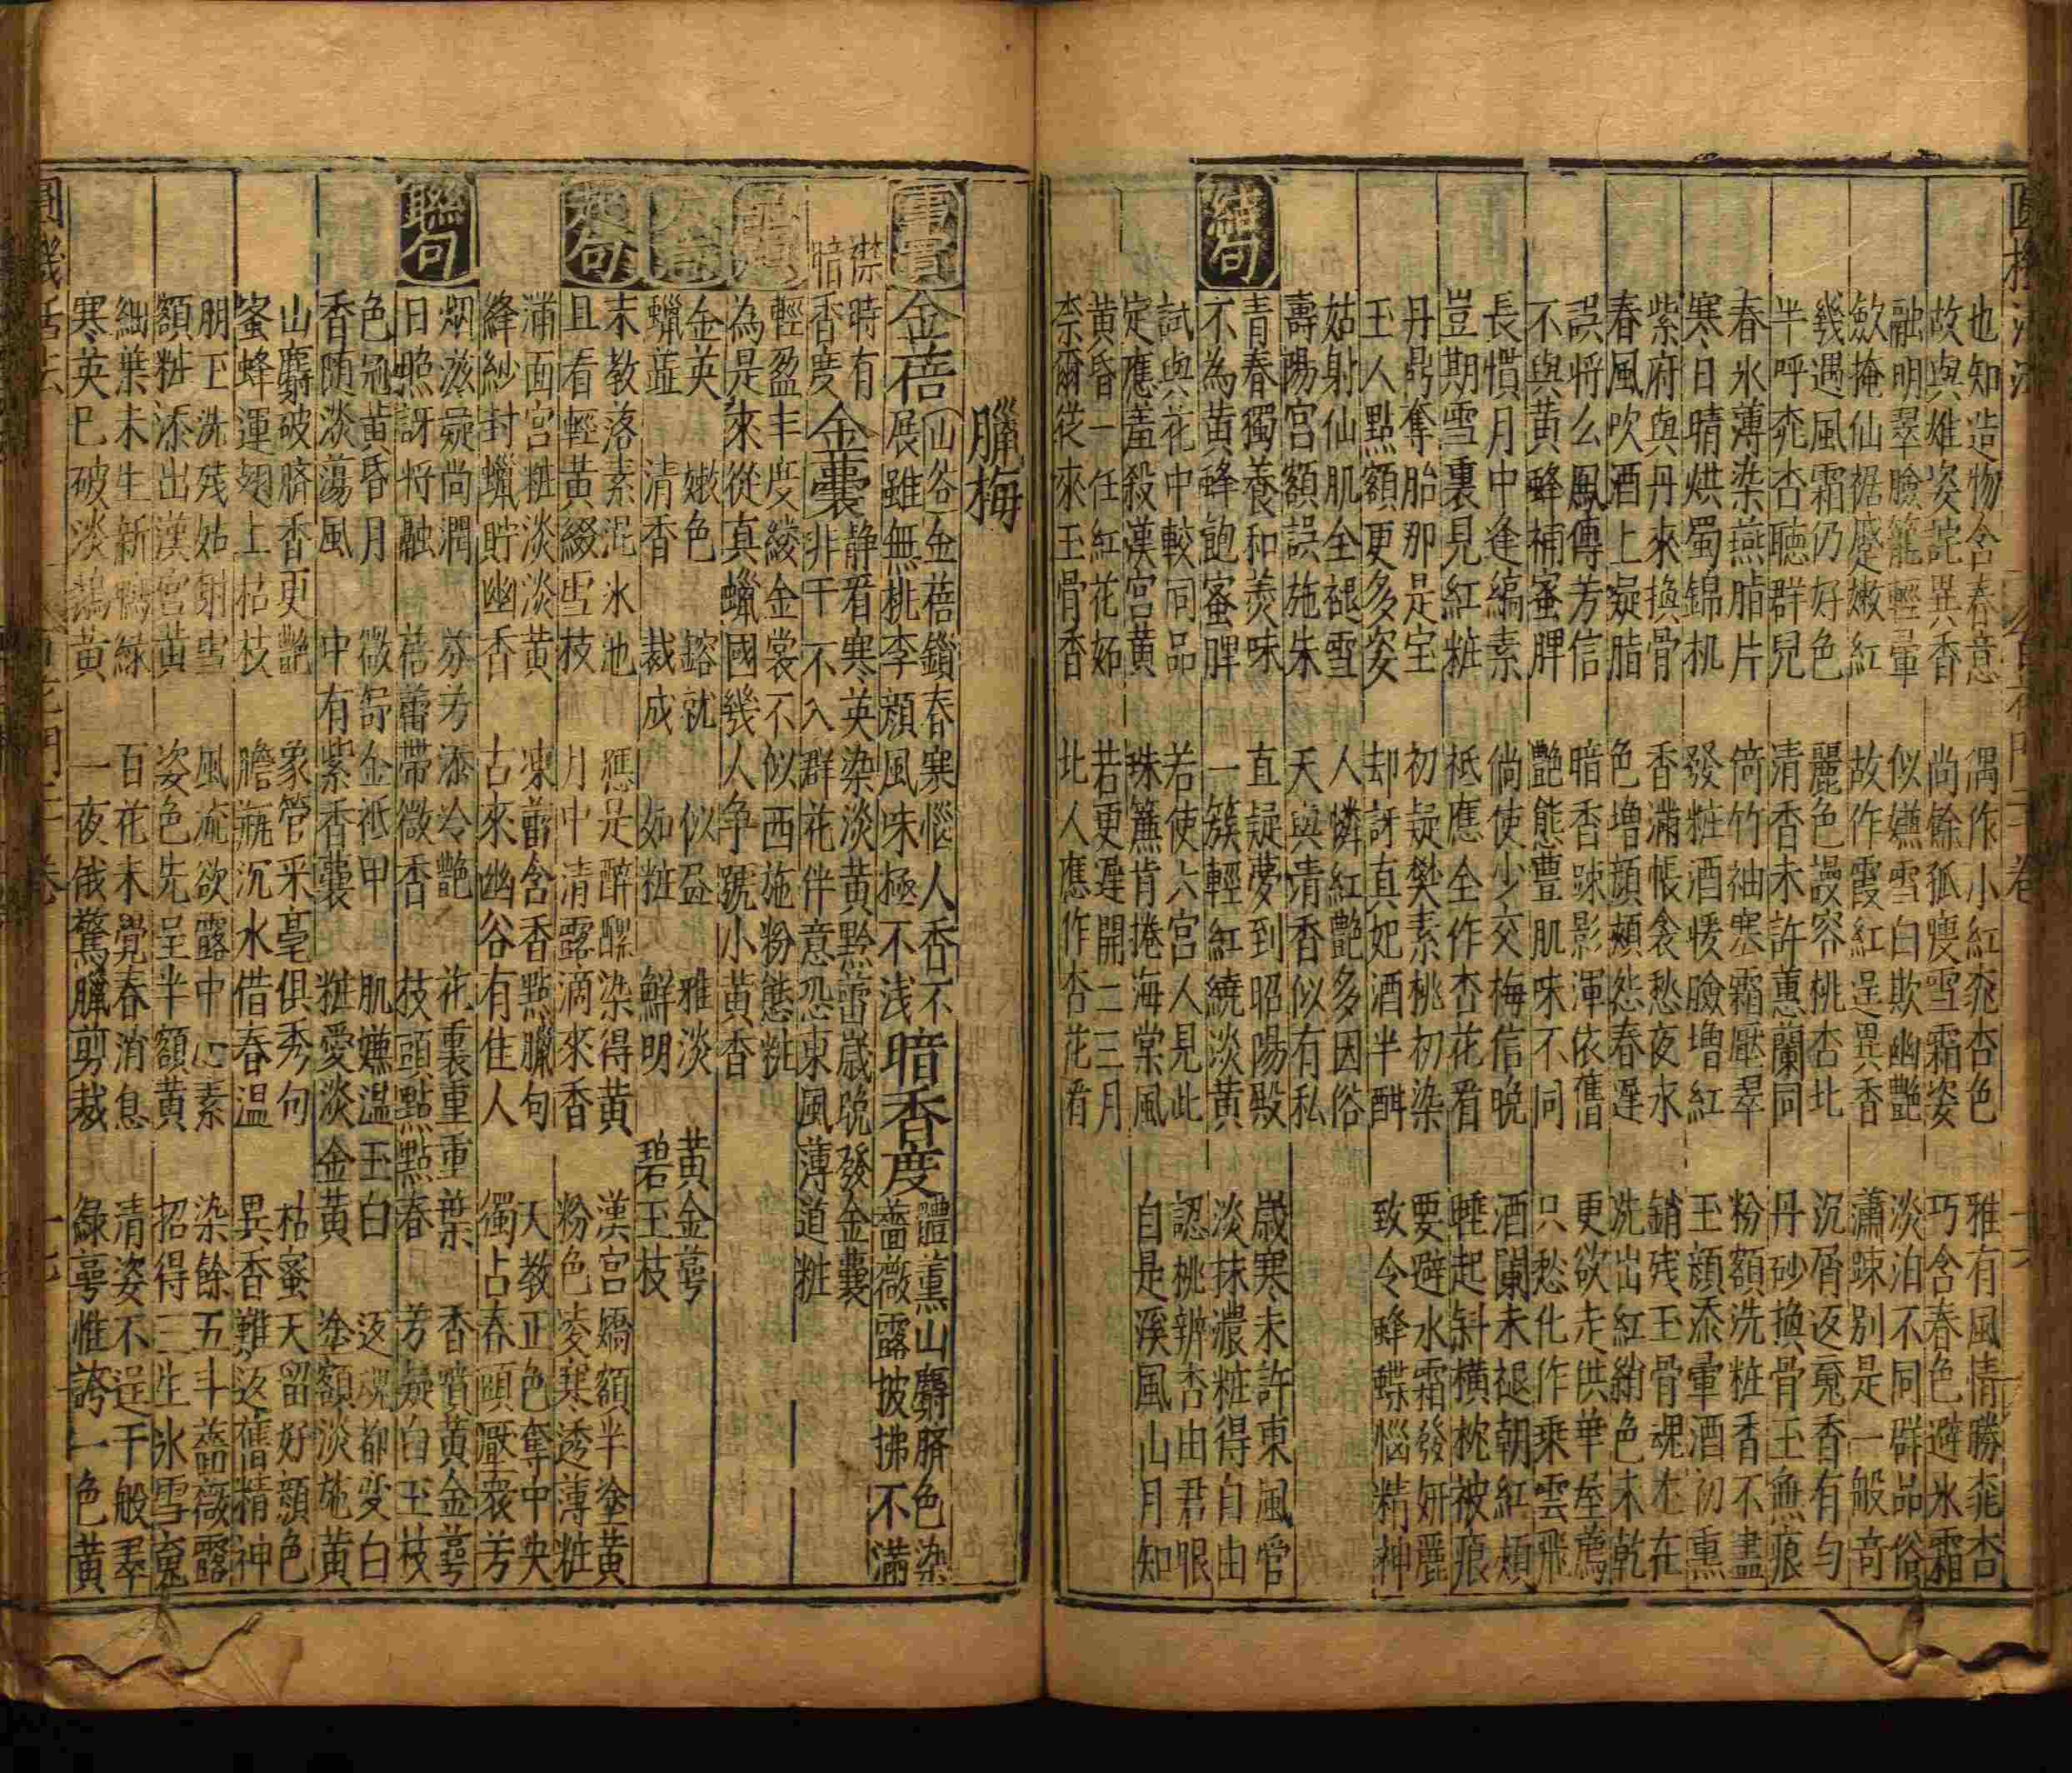 也知造物含春意 偶作小紅桃杏色 雅有風情勝桃杏
故與雄姿詫異香 尚餘孤瘦雪霜姿 巧含春色避氷霜
融明翠臉籠輕暈 似嫌雪白欺幽艶 淡泊不同群品俗
斂掩仙裾蹙嫩紅 故作霞紅逞異香 瀟踈別是一般竒
幾遇風霜仍好色 麗色謾容桃杏北 沉屑返䰟香有勻
半呼桃杏聽群兒 清香未許蕙蘭同 丹砂換骨玉無痕
春氷薄染燕脂片 倚竹袖寒霜壓翠 粉額洗粧香不盡
寒日晴烘蜀錦机 發粧酒煖臉增紅 玉顔添暈酒初熏
紫府與丹來換骨 香滿帳衾愁夜永 銷残玉骨魂在
春風吹酒上凝脂 色增顔頰怨春遲 洗出紅綃色未乾
誤将么鳳傳芳信 暗香踈影渾依舊 更欲走供華屋薦
不與黄蜂補蜜脾 艶態豐肌味不同 只愁化作乗雲飛
長慣月中逢縞素 倘使少交梅信晚 酒闌未褪朝紅頰
豈期雪裏見紅粧 祗應全作杏花看 睡起斜横枕被痕
丹鼎奪胎那是宝 初疑樊素桃初染 要避水霜發妍麗
玉人點額更多姿 却訝真妃酒半酣 致令蜂蝶惱精神
姑射仙肌全褪雪 人憐紅艶多因俗
壽陽宫額誤施朱 天與清香似有私
結句
青春獨養和羙味 直疑夢到昭陽殿 歳寒未許東風管
不為黄蜂飽蜜脾 一簇輕紅繞淡黄 淡抹濃粧得自由
試與花中較同品 若使六宫人見此 認桃辨杏由君眼
定應羞殺漢宫黄 珠簾肯捲海棠風 自是溪風山月知
黄昏一任紅花妬 若更遲開二三月
奈爾從來玉骨香 北人應作杏花看
臘梅
事實
金蓓 山谷金蓓鎖春寒惱人香不
展雖無桃李顔風味極不浅 暗香度 體薫山麝臍色染
薔薇露披拂不滿
襟時有
暗香度 金囊 静看寒英染淡黄黙蕾歳晚發金囊
非干不入群花伴意恐東風薄道粧
輕盈丰度縷金裳不似西施粉態粧
為是來從真蠟國幾人争號小黄香
金英 嫩色 鎔就 似盈 雅淡 黄金萼
蠟蕋 清香 裁成 如粧 鮮明 碧玉枝
起句
末教落素泥氷池 應是醉醿染得黄 漢宫嬌額半塗黄
且看輕黄綴雪枝 月中清露滴來香 粉色凌寒透薄粧
滿面宫粧淡淡黄 凍蕾含香點臘句 天教正色奪中央
絳紗封蠟貯幽香 古來幽谷有佳人 獨占春頭壓衆芳
聯句
烟滋凝尚潤 芬芳添冷艶 花裏重重葉 香噴黄金萼
日照訝将融 蓓蕾帶微香 枝頭點點春 芳凝白玉枝
色冠黄昏月 微寄金祗甲 肌嫌温玉白 返魂都变白
香随淡蕩風 中有紫香囊 粧愛淡金黄 塗額淡施黄
山麝破臍香更艶 象管采毫俱秀句 枯蜜天留好顔色
蜜蜂運翅上枯枝 膽瓶沉水借春温 異香難返舊精神
朋玉洗残姑射雪 風流欲露中心素 染餘五斗薔薇露
額粧添出漢宫黄 姿色先呈半額黄 招得三生氷雪䰟
絀葉未生新鴨緑 百花未覺春消息 清姿不逞千般翠
寒英已破淡鵝黄 一夜俄驚臘剪裁 綠萼惟誇一色黄